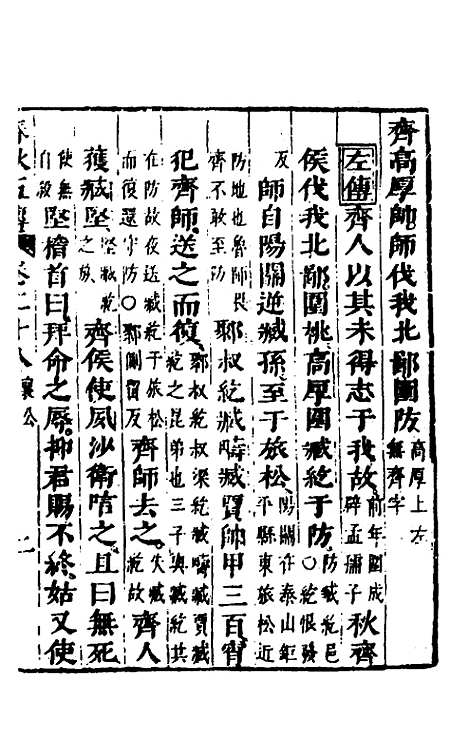 齊高厚帥師伐我北鄙圍防高厚上左無齊字
左傳齊人以其未得志于我故前年圍成辟孟孺子秋齊
侯伐我北鄙圍桃高厚圍臧紇于防防臧紇邑○紇恨發
反師自陽關逆臧孫至于旅松陽關在泰山鉅平縣東旅松近
防地也魯師畏齊不敢至防郰叔紇臧疇臧賈帥甲三百宵
犯齊師送之而復郰叔紇叔梁紇臧疇臧賈臧紇之昆弟也三子與臧紇共
在防故夜送臧紇于旅松而復還守防○郰側留反齊師去之失臧紇故齊人
獲臧堅堅臧紇之族齊侯使夙沙衛唁之且曰無死
使無自殺堅稽首曰拜命之辱抑君賜不終姑又使
春秋左傳 卷二十八 襄公